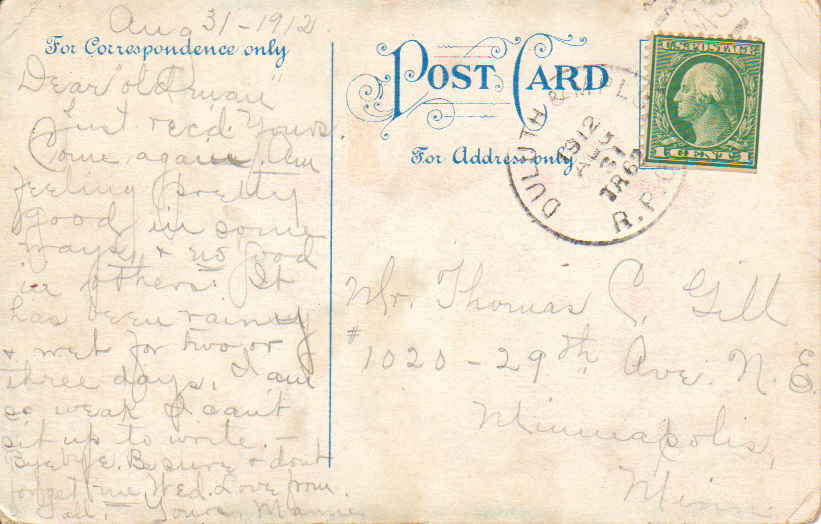 Aug 31-1912.
For Correspondence only
Dear "old man"
Just recd. Yours.
Come again. Am
feeling pretty
good in some
ways, & no good
in others. It
has been rainy
& wet for two or
three days. I am
so weak I can't
sit up to write. -
Bye bye. Be sure & dont
forget me Wed. Love from
all, - Yours, Mamie
POST CARD
For Address only
DULUTH &
1912
AUG
31
TR 62
R.P.O.
U.S. POSTAGE
1 CENT 1
Mr. Thomas C. Gill
#1020 - 29th Ave. N.E.
Minneapolis,
Minn.